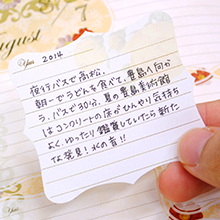 August
7
Year 2014
夜行バスで高松。
朝一でうどんを食べて、豊島へ向か
う。バスで30分、夏の豊島美術館
はコンクリートの床がひんやり気持ち
よく、ゆったり鑑賞していたら新た
な発見！水の音!!
Year